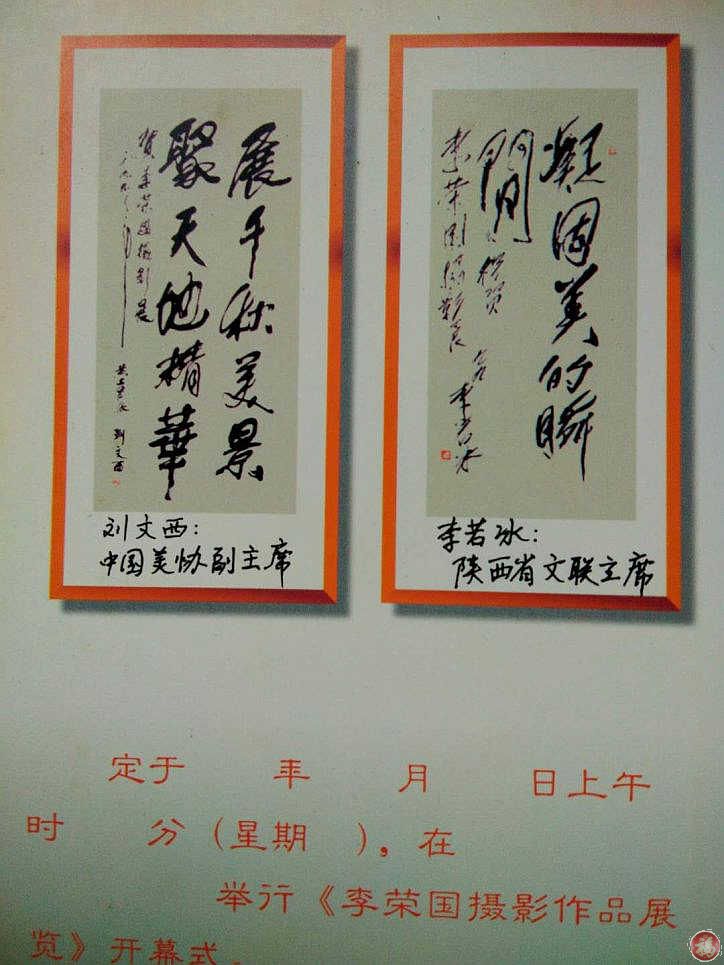 展千秋美景
聚天地精華
贺李荣国摄影展
刘文西
刘文西：
中国美协副主席
凝固美的瞬
間
祝贺
李荣国摄影展
李若冰
李若冰：
陕西省文联主席
定于 年 月 日上午
时 分（星期 ），在
举行《李荣国摄影作品展
览》开幕式．
福